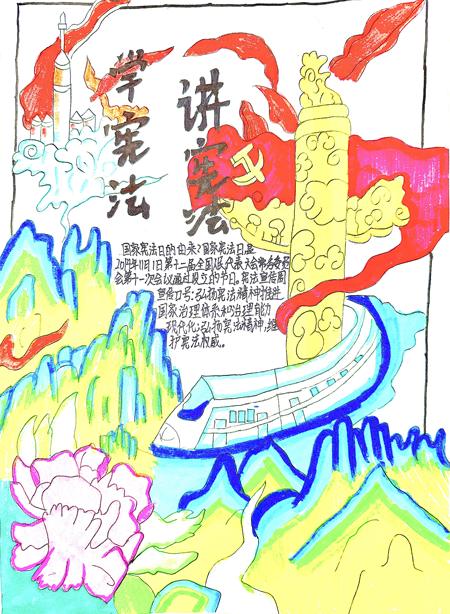 学宪法
讲宪法
国家宪法日的由来?国家宪法日是
2014年11月1日第十二届全国人民代表大会常务委员
会第十一次会议通过设立的节日。宪法宣传周
宣传口号:弘扬宪法精神推进
国家治理体系和治理能力
现代化;弘扬宪法精神,维
护宪法权威。